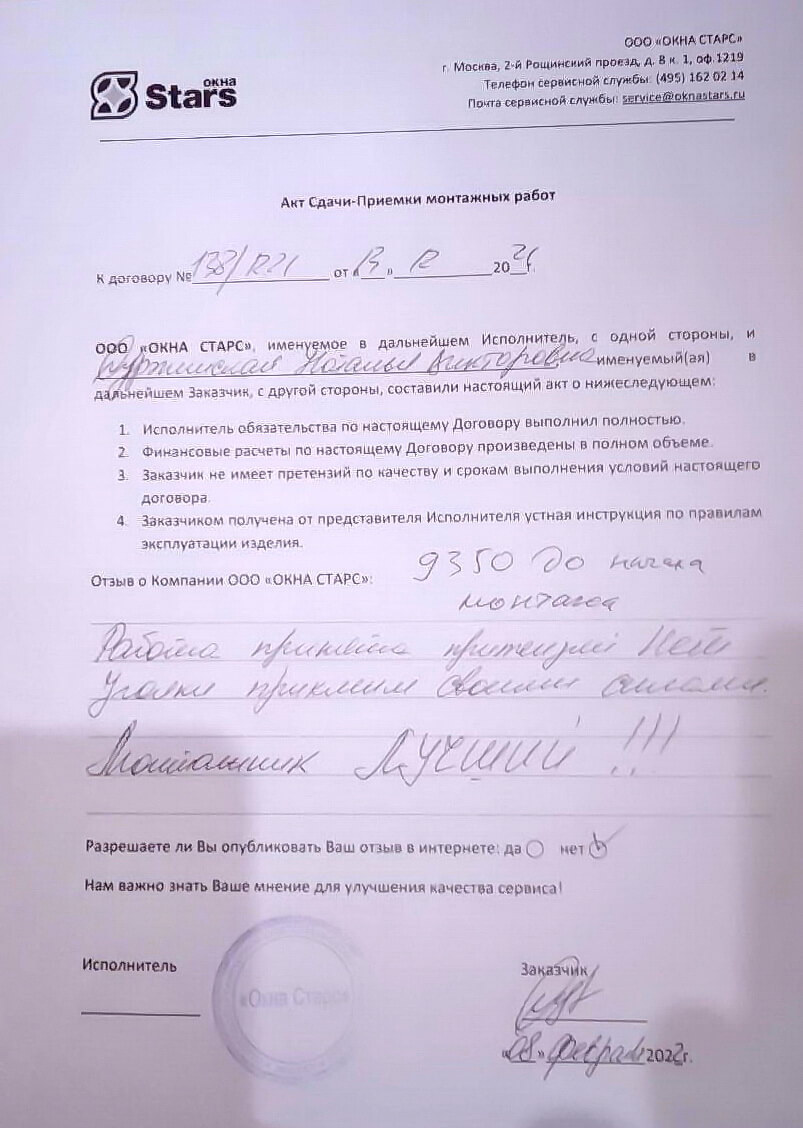 ОКНА
Stars
ООО «ОКНА СТАРС»
г. Москва, 2-й Рощинский проезд, д. 8 к. 1, оф.1219
Телефон сервисной службы: (495) 162 02 14
Почта сервисной службы: service@oknastars.ru
Акт Сдачи-Приемки монтажных работ
К договору № 138/R21 от «13» 12 2021г.
ООО «ОКНА СТАРС», именуемое в дальнейшем Исполнитель, с одной стороны, и
Наталья Викторовна именуемый(ая) в
дальнейшем Заказчик, с другой стороны, составили настоящий акт о нижеследующем:
1. Исполнитель обязательства по настоящему Договору выполнил полностью.
2. Финансовые расчеты по настоящему Договору произведены в полном объеме.
3. Заказчик не имеет претензий по качеству и срокам выполнения условий настоящего
договора.
4. Заказчиком получена от представителя Исполнителя устная инструкция по правилам
эксплуатации изделия.
Отзыв о Компании ООО «ОКНА СТАРС»: 9350 до начала
монтажа
Работа принята притензий Нет
Уголки приклеим своими силами.
Монтажник ЛУЧШИЙ !!!
Разрешаете ли Вы опубликовать Ваш отзыв в интернете: да нет
Нам важно знать Ваше мнение для улучшения качества сервиса!
Исполнитель
«Окна Старс»
Заказчик
«08» Февраля 2022г.